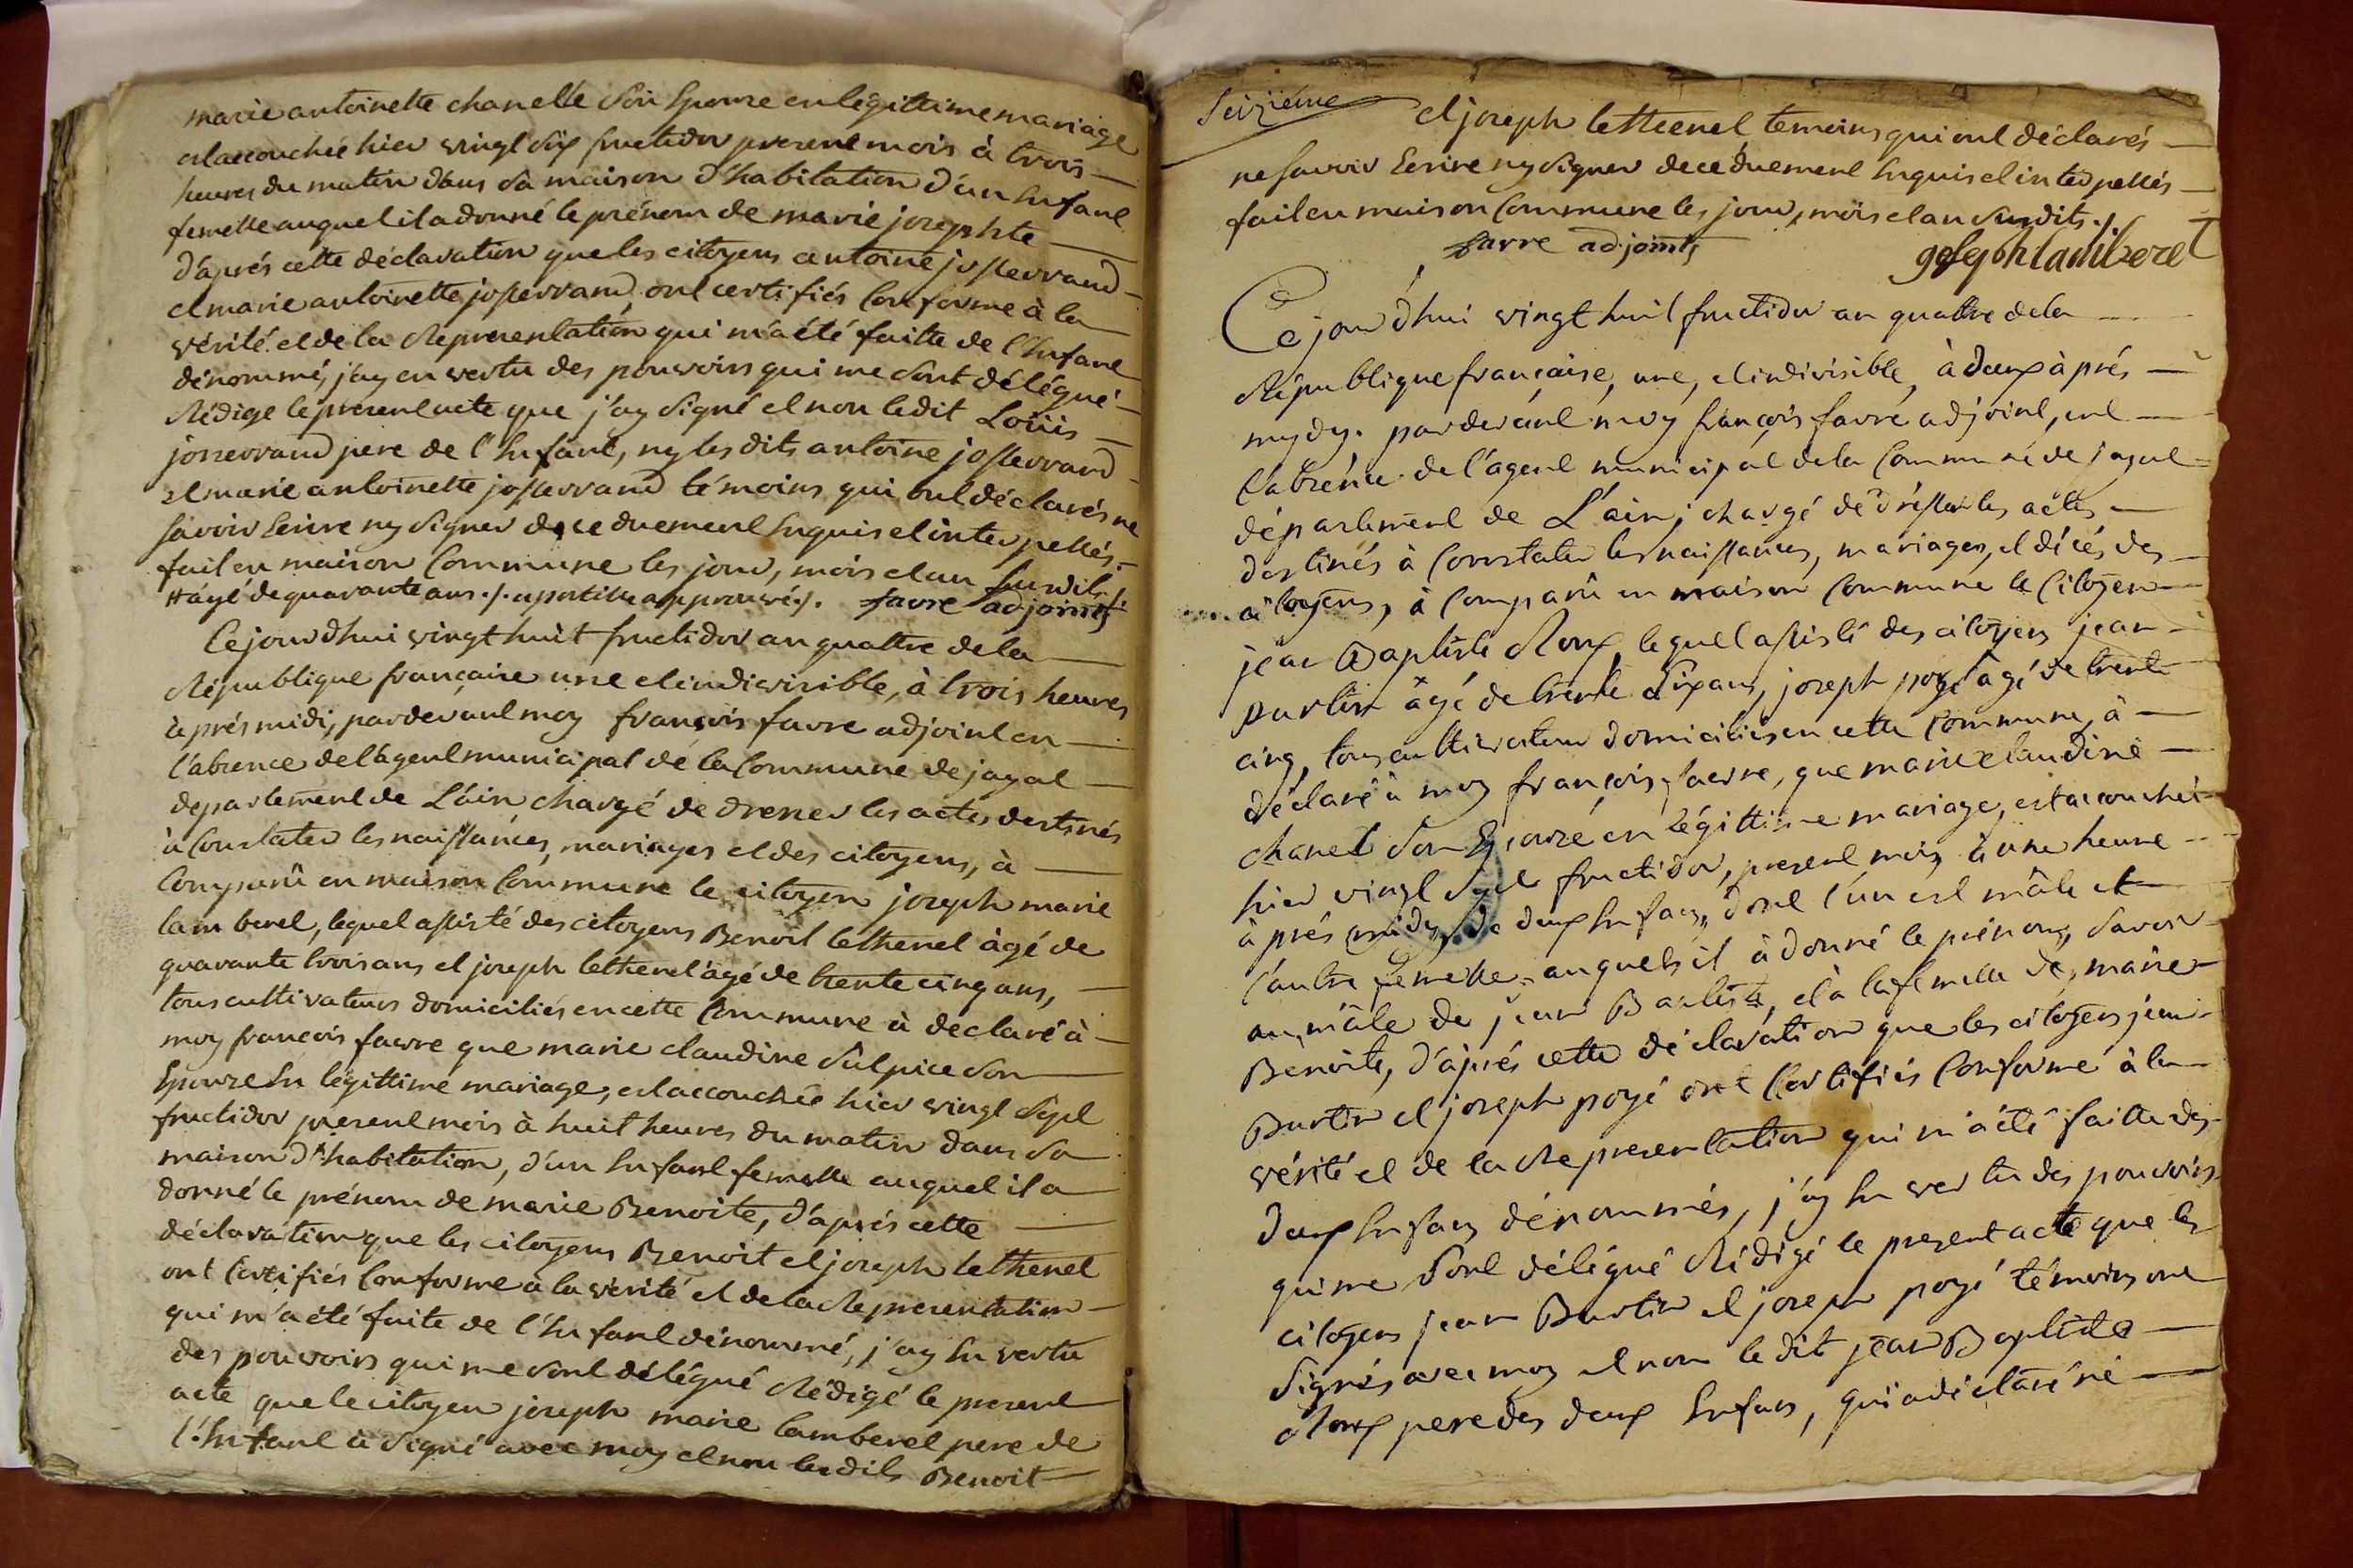 marie antoinette chanelle son Epouze en légittime mariage
est accouchée hier vingt six fructidor present mois à trois
heures du matin dans sa maison d'habitation d'un Enfant
femelle auquel il a donné le prénom de marie josephte
d'aprés cette déclaration que les citoyens antoine josserrand
et marie antoinette josserrand ont certifiés Conforme à la
vérité et de la Representation qui m'a été faitte de l'Enfant
dénommé, j'ay en vertu des pouvoirs qui me sont délégué
Rédigé le present acte que j'ay signé et non ledit Loüis
josserrand pere de l'Enfant, ny les dits antoine josserrand
et marie antoinette josserrand témoins qui ont déclarés ne
savoir Ecrire ny signer de ce duement Enquis et interpellés.
fait en maison Commune les jour, mois et an susdits ./.
# âgé de quarante ans ./. apostille approuvé ./. favre adjoint
Ce jourd'hui vingt huit fructidor an quattre de la
République française une et indivisible, à trois heures
après midi, pardevant moy françois favre adjoint en
l'absence de l'agent municipal de la Commune de jayat
departement de L'ain chargé de dresser les actes destinés
à Constater les naissances, mariages et des citoyens, à
Comparû en maison Commune le citoyen joseph marie
lamberet, lequel assisté des citoyens Benoit lethenet âgé de
quarante trois ans et joseph lethenet âgé de trente cinq ans,
tous cultivateurs domiciliés en cette Commune à declaré à
moy françois favre que marie claudine Sulpice son
Epouze En légittime mariage, est accouchée hier vingt sept
fructidor present mois à huit heures du matin dans sa
maison d'habitation, d'un Enfant femelle auquel il a
donné le prénom de marie Benoite, d'aprés cette
déclaration que les citoyens Benoit et joseph lethenet
ont Certifiés Conforme à la vérité et de la Representation
qui m'a été faite de l'Enfant dénommé, j'ay En vertu
des pouvoirs qui me sont délégué Rédigé le present
acte que le citoyen joseph marie lamberet pere de
l'Enfant à signé avec moy et non les dits Benoit
Seiziéme
et joseph lethenet temoins qui ont déclarés
ne savoir Ecrire ny signer de ce duement Enquis et interpellés
fait en maison Commune les jour, mois et an susdits ./.
favre adjoint
joseph lamberet
Ce jourd'hui vingt huit fructidor an quattre de la
République française, une, et indivisible, à deux à prés
mydy. pardevant moy françois favre adjoint, en
l'absence de l'agent municipal de la Commune de jayat
département de L'ain, chargé de dresser les actes
destinés à Constater les naissances, mariages, et décés des
citoyens, à Comparû en maison Commune le Citoyen
jean Baptiste Roux, lequel assisté des citoyens jean
burtin âgé de trente six ans, joseph poyé âgé de trente
cinq, tous cultivateur domiciliés en cette Commune, à
déclaré à moy françois favre, que marie claudine
chanel son Epouze en légittime mariage, est accouchée
hier vingt sept fructidor, present mois à une heure
à prés midy, de deux Enfans, dont l'un est mâle et
l'autre femelle, auquels il à donné le prénom, savoir
au mâle de jean Batiste, et à la femelle de, marie
Benoite, d'aprés cette déclaration que les citoyens jean
Burtin et joseph poyé ont Certifiés Conforme à la
vérité et de la Representation qui m'a été faitte des
deux Enfans dénommés, j'ay En vertu des pouvoirs
qui me sont délégué Rédigé le present acte que les
citoyens jean Burtin et joseph poyé témoins ont
signés avec moy et non le dit jean Baptiste
Roux pere des deux Enfans, qui a déclaré ne